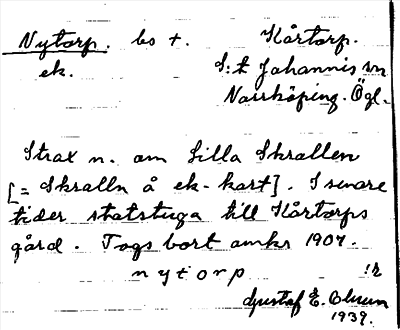 Nytorp. bs +. Kårtorp.
ek. S:t Johannis sn
Norrköping. Ögl.
Strax n. om Lilla Skrallen
[= Skralln å ek-kart]. I senare
tider statstuga till Kårtorps
gård. Togs bort omkr 1907.
nytorp !2
Gustaf E. Olsson
1939.